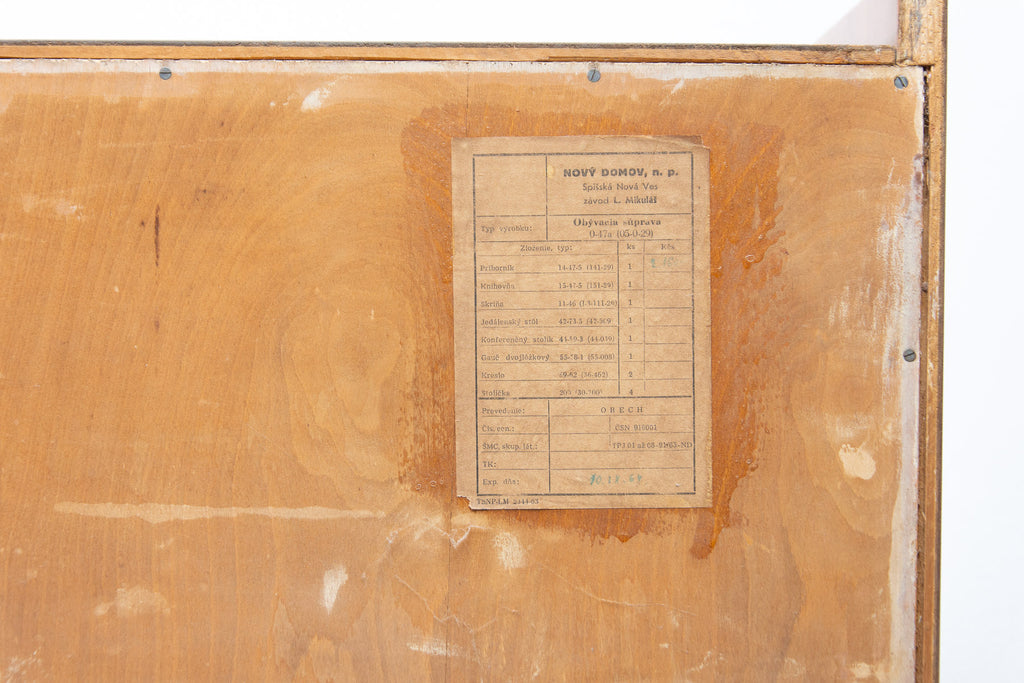 NOVÝ DOMOV, n. p.
Spišská Nová Ves
závod L. Mikuláš
Typ výrobku:
Obývacia súprava
0-47a (05-0-29)
Zloženie, typ: ks Kčs
Príborník 14-47-5 (141-29) 1
Knihovňa 15-47-5 (151-59) 1
Skriňa 11-46 1
Jedálenský stôl 42-73-5 1
Konferenčný stolík 44-59-3 (44-039) 1
Gauč dvojlôžkový 55-28-1 (55-008) 1
Kreslo 69-62 (36-462) 2
Stolička 200 (30-200) 4
Prevedenie: ORECH
Čís. cen.: ČSN 910001
ŠMC, skup. lát.: TPJ 01 až 08-91/63-ND
TK:
Exp. dňa:
TSNP-LM 2944-63